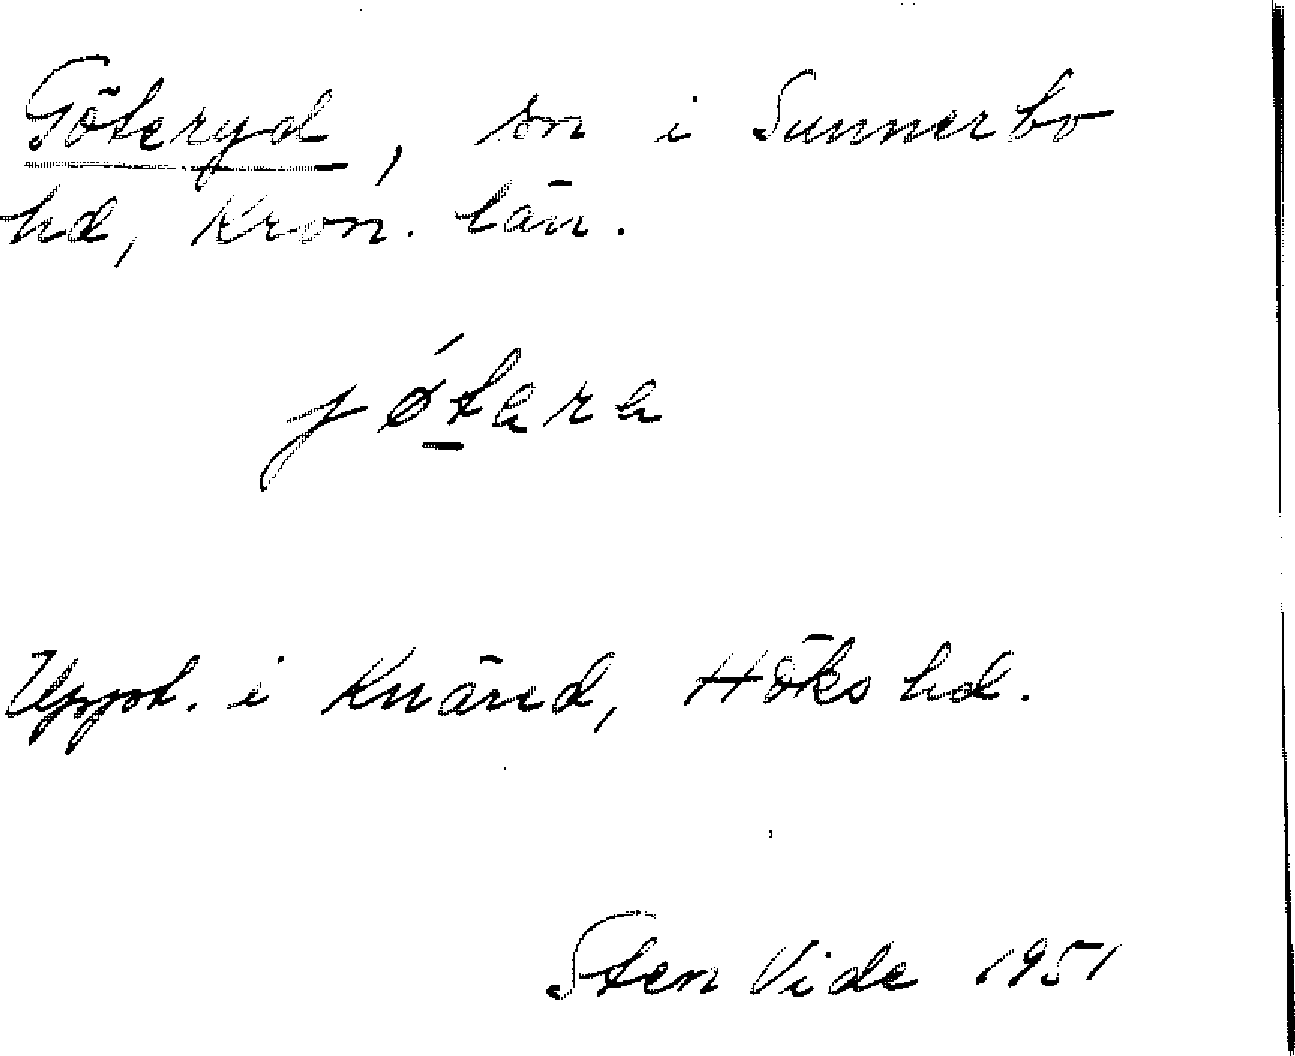 Göteryd, sn i Sunnerbo
hd, Kron. län.
jǿtara
Uppt. i Knäred, Höks hd.
Sten Vide 1951